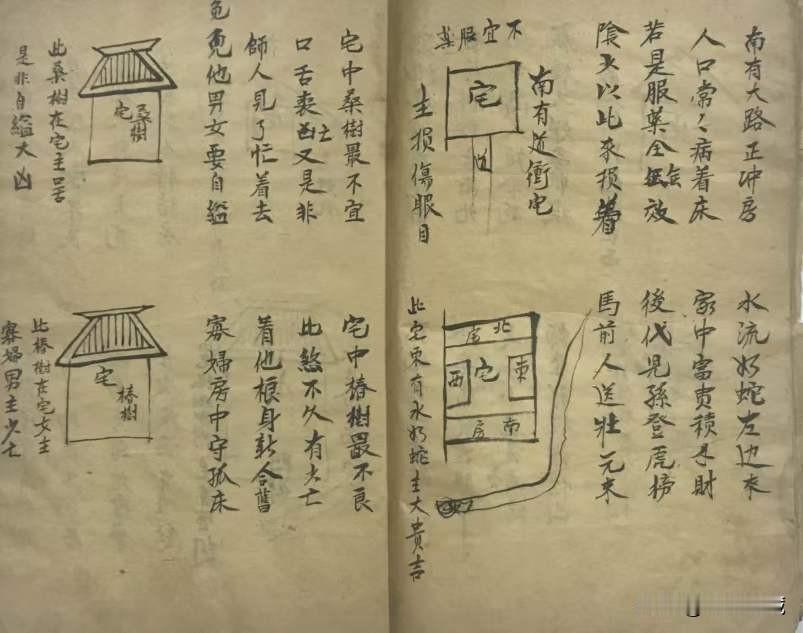 南有大路正冲房
人口常々病着床
若是服薬全無效
陰火以此來損
南有道衝宅
不宜服薬
宅
道
主損傷眼目
水流如蛇左边來
家中富貴積予財
後代児孫登虎榜
馬前人送壮元來
北房
東
宅
西
南房
此宅東有水如蛇主大貴吉
宅中桑樹最不宜
口舌喪亡又是非
師人見了忙着去
免他男女要自縊
桑樹
宅
此桑樹在宅主口舌
是非自縊大凶
宅中椿樹最不良
此煞不久有少亡
着他根身新合舊
寡婦房中守孤床
椿樹
宅
此椿樹在宅女主
寡婦男主少亡